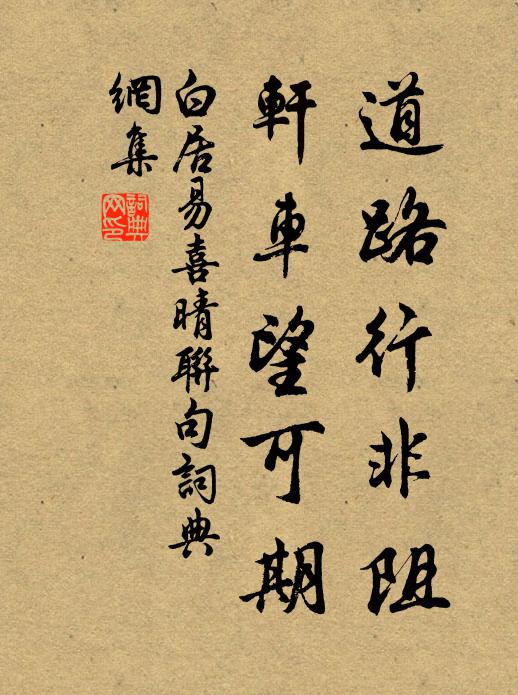 道路行非阻
軒車望可期
白居易喜晴聯句詞典
網集
詞典
网印